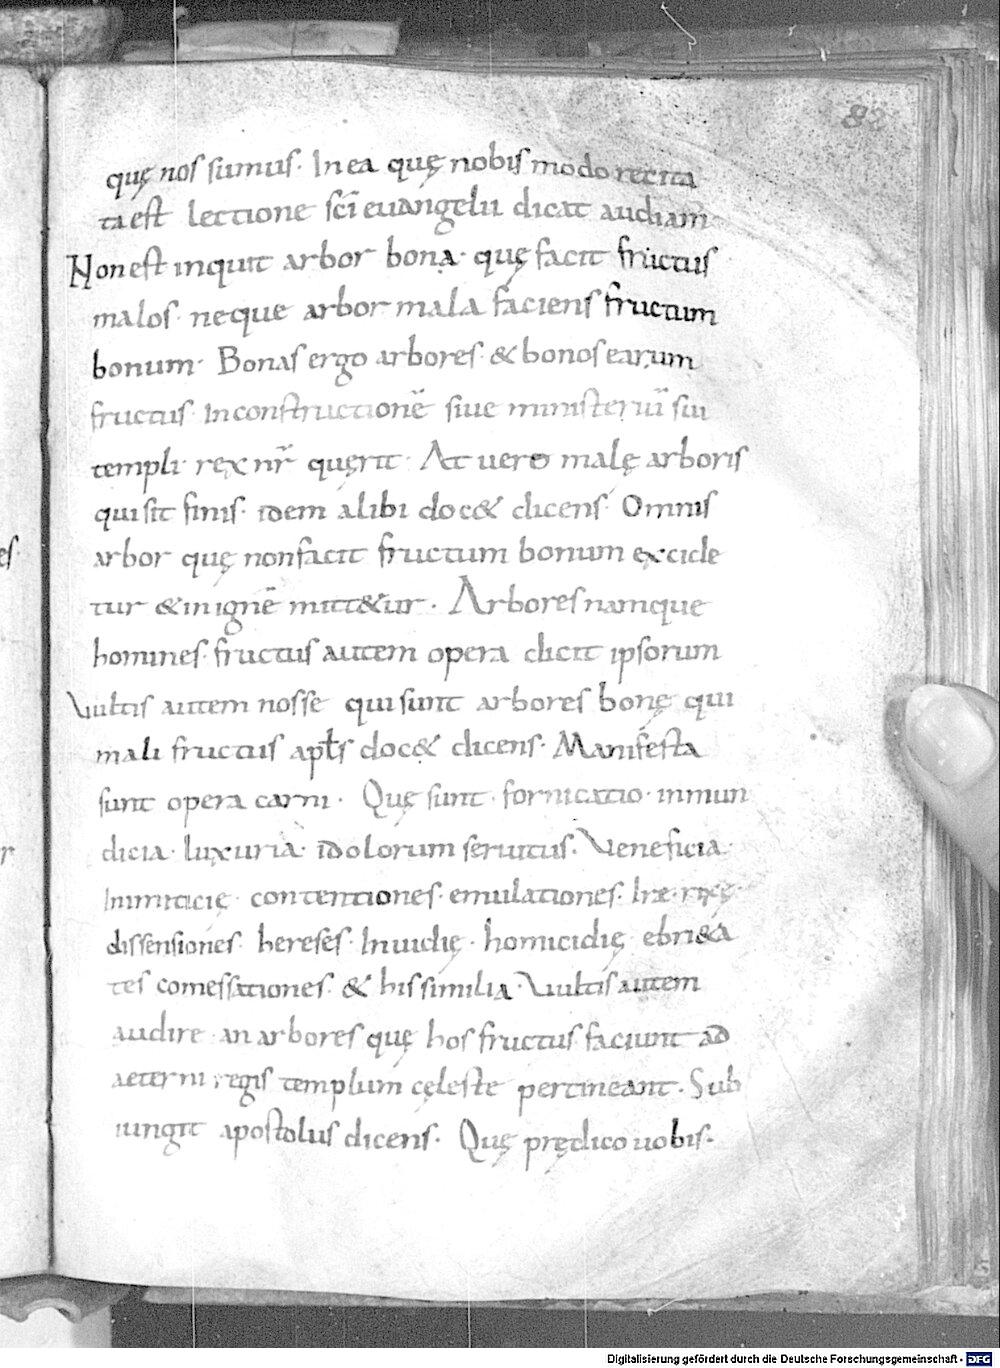 82
quę nos sumus· In ea quę nobis modo recita
ta est lectione sc̄i euangelii dicat audiam̄
Non est inquit arbor bona· quę facit fructus
malos· neque arbor mala faciens fructum
bonum· Bonas ergo arbores· & bonos earum
fructus· In constructionē siue ministeriū sui
templi· rex nr̄ quęrit· At uero malę arboris
qui sit finis· idem alibi doc& dicens· Omnis
arbor quę non facit fructum bonum excide
tur & in ignē mitt&ur· Arbores namque
homines· fructus autem opera dicit ipsorum
Vultis autem nosse qui sunt arbores bonę qui
mali fructus apl̄s doc& dicens· Manifesta
sunt opera carni· Quę sunt· fornicatio· inmun
dicia· luxuria· idolorum seruitus· Veneficia·
Inimicicię· contentiones· emulationes· Irę· rixę·
dissensiones· hereses· Inuidię· homicidię· ebri&a
tes comessationes· & his similia· Vultis autem
audire· an arbores quę hos fructus faciunt ad
aeterni regis templum cęleste pertineant· Sub
iungit apostolus dicens· Quę prędico uobis·
es
r
Digitalisierung gefördert durch die Deutsche Forschungsgemeinschaft - DFG